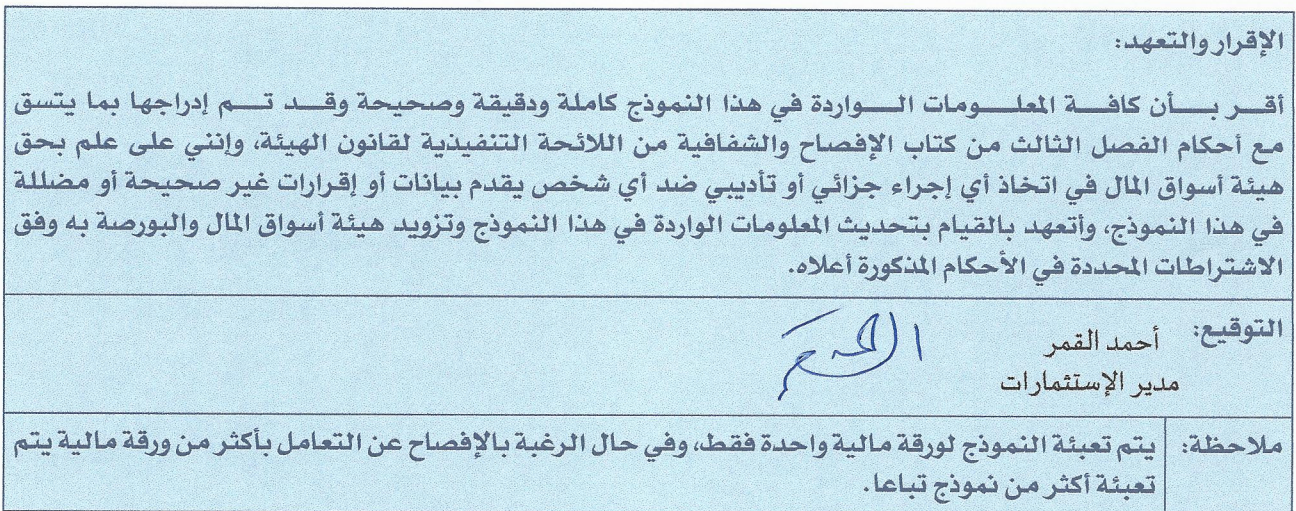 الإقرار والتعهد:
أقر بأن كافة المعلومات الواردة في هذا النموذج كاملة ودقيقة وصحيحة وقد تم إدراجها بما يتسق
مع أحكام الفصل الثالث من كتاب الإفصاح والشفافية من اللائحة التنفيذية لقانون الهيئة، وإنني على علم بحق
هيئة أسواق المال في اتخاذ أي إجراء جزائي أو تأديبي ضد أي شخص يقدم بيانات أو إقرارات غير صحيحة أو مضللة
في هذا النموذج، وأتعهد بالقيام بتحديث المعلومات الواردة في هذا النموذج وتزويد هيئة أسواق المال والبورصة به وفق
الاشتراطات المحددة في الأحكام المذكورة أعلاه.
التوقيع: أحمد القمر
مدير الإستثمارات
ملاحظة: يتم تعبئة النموذج لورقة مالية واحدة فقط، وفي حال الرغبة بالإفصاح عن التعامل بأكثر من ورقة مالية يتم
تعبئة أكثر من نموذج تباعا.